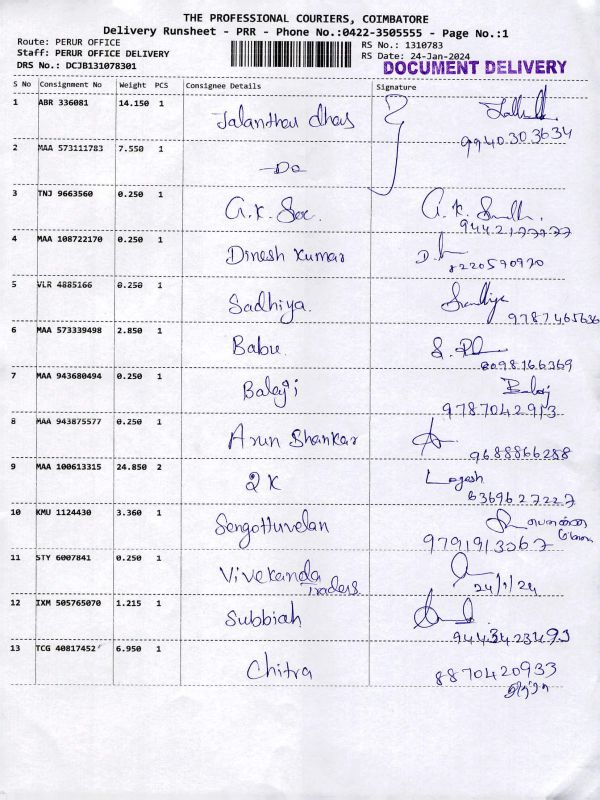 THE PROFESSIONAL COURIERS, COIMBATORE
Delivery Runsheet - PRR - Phone No.:0422-3505555 - Page No.:1
Route: PERUR OFFICE
RS No.: 1310783
Staff: PERUR OFFICE DELIVERY
RS Date: 24-Jan-2024
DRS No.: DCJB131078301
DOCUMENT DELIVERY
S No Consignment No Weight PCS Consignee Details Signature
1 ABR 336081 14.150 1 Jalanthau dhas
9940303634
2 MAA 573111783 7.550 1 -Do
3 TNJ 9663560 0.250 1 G.K. G.K.
9442177777
4 MAA 108722170 0.250 1 Dinesh Kumar
8220590970
5 VLR 4885166 0.250 1 Sadhiya.
9787465636
6 MAA 573339498 2.850 1 Babu.
8098166369
7 MAA 943680494 0.250 1 Balaji Balaj
9787042913
8 MAA 943875577 0.250 1 Arun Shankar
9688866288
9 MAA 100613315 24.850 2 2K Logesh
6369627227
10 KMU 1124430 3.360 1 Sengottuvelan
9791913067
11 STY 6007841 0.250 1 Vivekanda
Traders 24/1/24
12 IXM 505765070 1.215 1 Subbiah
9443423493
13 TCG 40817452 6.950 1 Chitra 8870420933